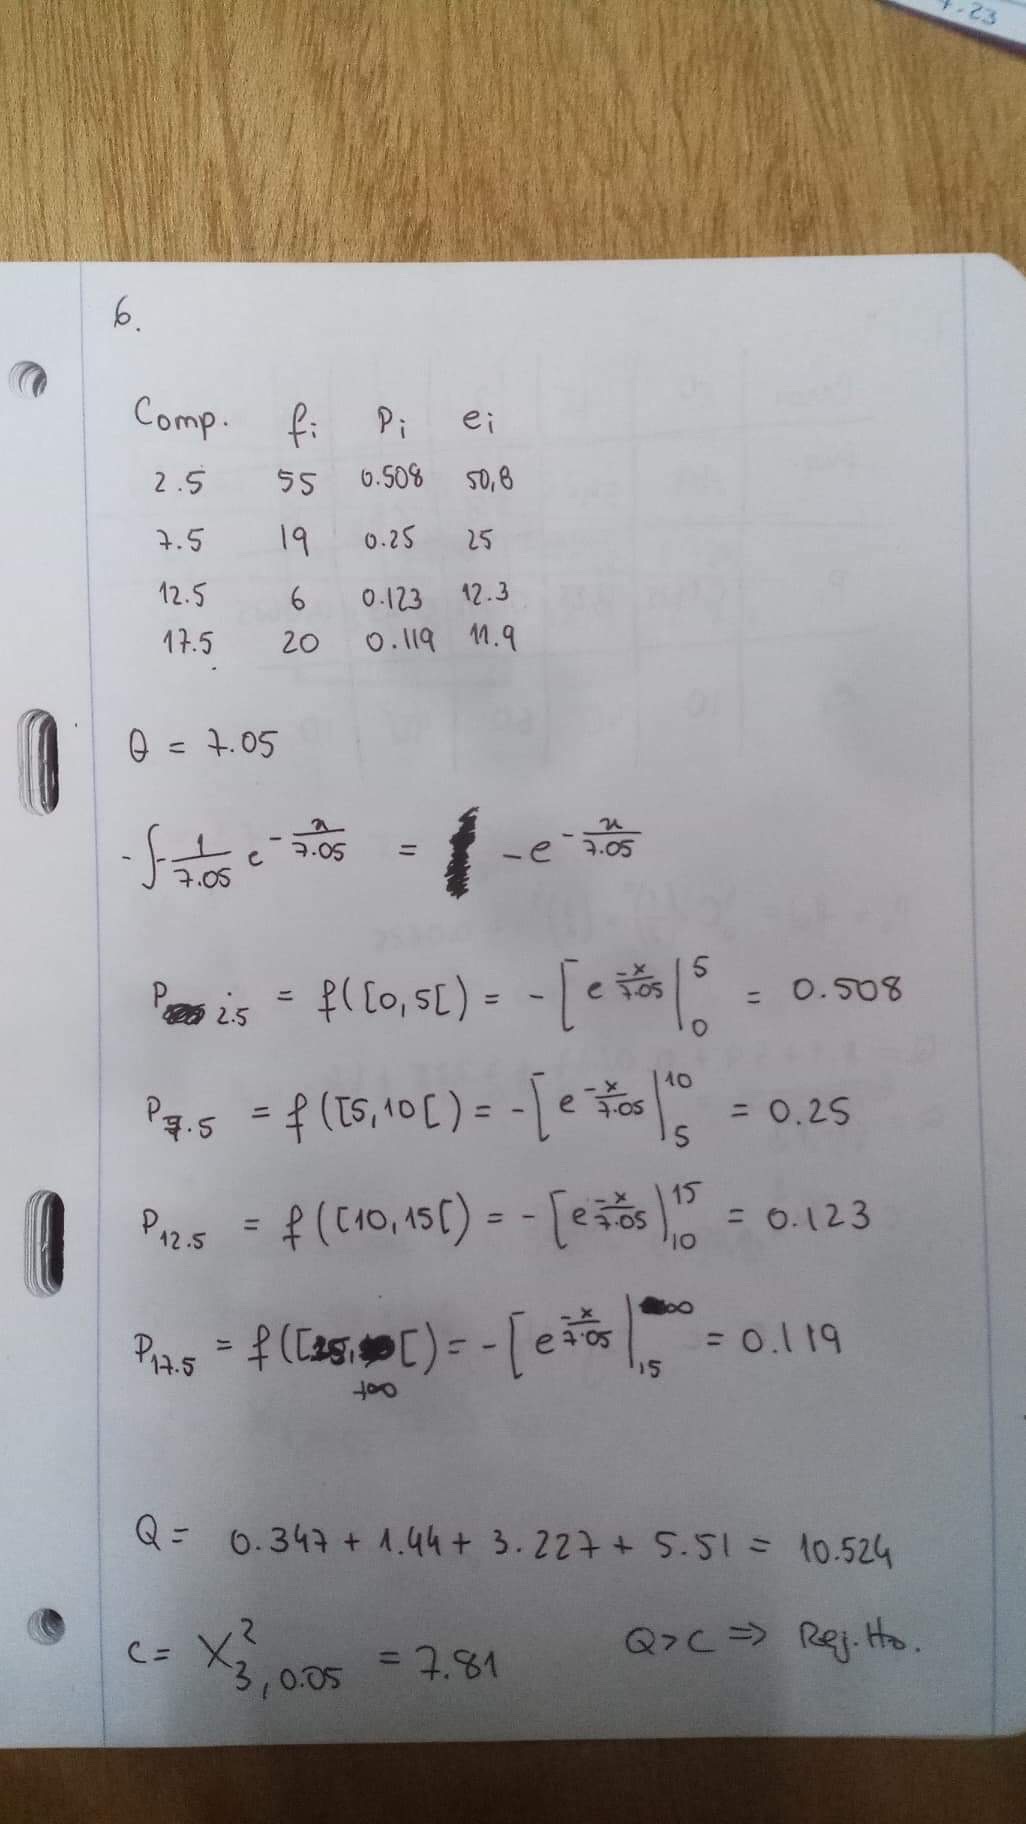 7.23
6.
Comp. fi Pi ei
2.5 55 0.508 50,8
7.5 19 0.25 25
12.5 6 0.123 12.3
17.5 20 0.119 11.9
θ = 7.05
- ∫ - 1/7.05 e^(-x/7.05) = - e^(-x/7.05)
P 2.5 = f([0,5[) = - [e^(-x/7.05)|_0^5 = 0.508
P 7.5 = f([5,10[) = - [e^(-x/7.05)|_5^10 = 0.25
P 12.5 = f([10,15[) = - [e^(-x/7.05)|_10^15 = 0.123
P 17.5 = f([15, +∞[) = - [e^(-x/7.05)|_15^∞ = 0.119
Q = 0.347 + 1.44 + 3.227 + 5.51 = 10.524
C = X²_3,0.05 = 7.81 Q > C ⇒ Rej. Ho.